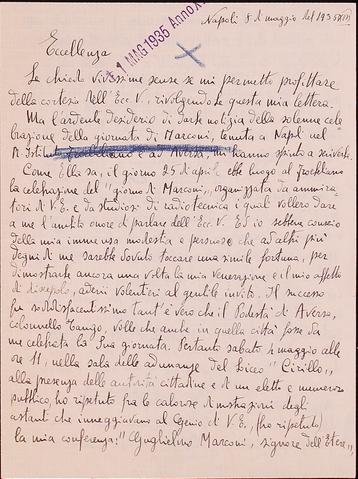 Napoli 8 di maggio del 1935 XIII
1 MAG 1935 Anno X
Eccellenza
Le chiedo vivissime scuse se mi permetto profittare
della cortesia dell'Ecc. V. rivolgendole questa mia lettera.
Ma l'ardente desiderio di darle notizia della solenne cele
brazione della giornata di Marconi, tenuta a Napoli nel
R. Istituto Froebeliano e ad Aversa, mi hanno spinto a scriverle.
Come Ella sa, il giorno 25 di aprile ebbe luogo al froebeliano
la celebrazione del "giorno di Marconi", organizzata da ammira
tori di V. E. e da studiosi di radiotecnica i quali vollero dare
a me l'ambito onore di parlare dell'Ecc. V. Ed io sebbene conscio
della mia immensa modestia e persuaso che ad altri più
degni di me sarebbe dovuto toccare una simile fortuna, per
dimostrarle ancora una volta la mia venerazione e il mio affetto
di discepolo, aderii volentieri al gentile invito. Il successo
fu soddisfacentissimo tant'è vero che il Podestà di Aversa,
colonnello Tango, volle che anche in quella città fosse da
me celebrata la Sua giornata. Pertanto sabato 4 maggio alle
ore 11, nella sala delle adunanze del liceo "Cirillo",
alla presenza delle autorità cittadine e di un eletto e numeroso
pubblico, ho ripetuto fra le calorose dimostrazioni degli
astanti che inneggiavano al Genio di V. E., (ho ripetuto)
la mia conferenza: "Guglielmo Marconi, signore dell'Etere",